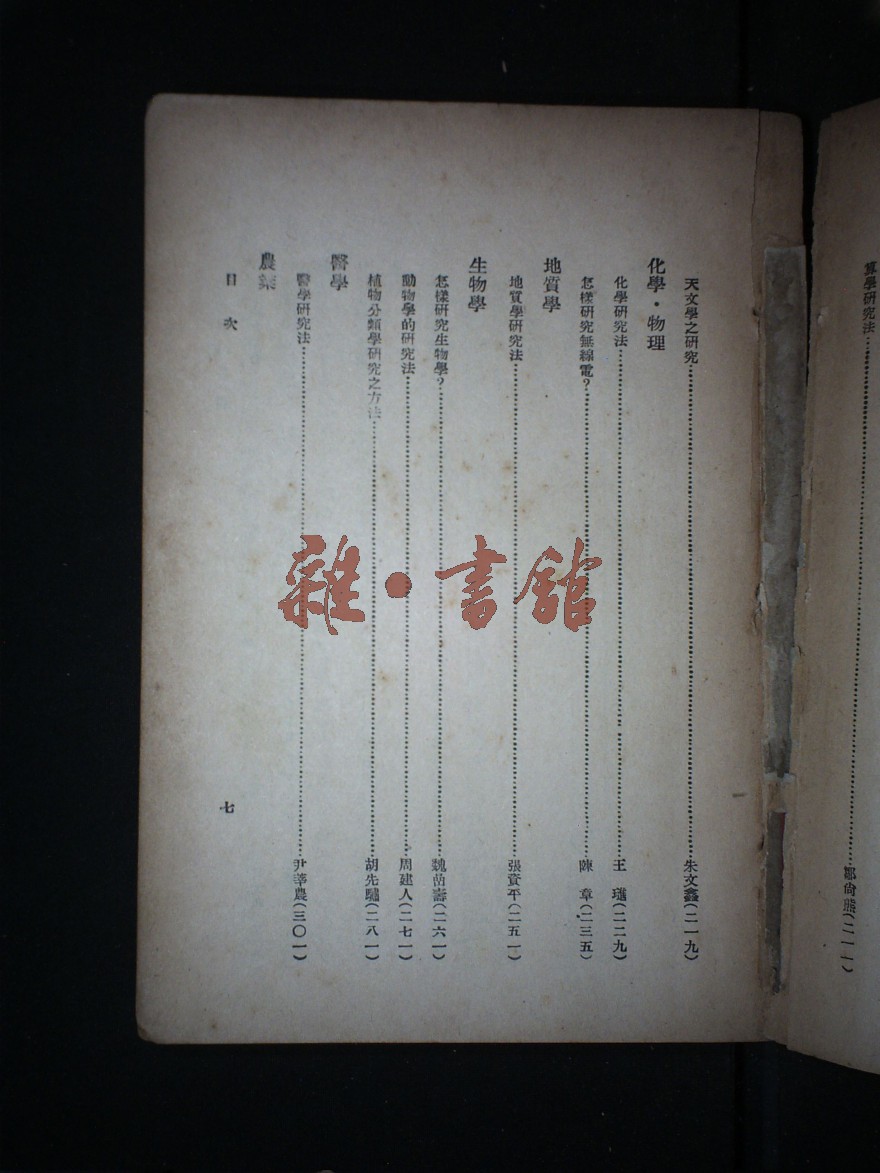 算學研究法……鄒尙熊(二一一)
天文學之研究……朱文鑫(二一九)
化學·物理
化學研究法……王璡(二二九)
怎樣研究無線電？……陳章(二三五)
地質學
地質學研究法……張資平(二五一)
生物學
怎樣研究生物學？……魏喦壽(二六一)
動物學的研究法……周建人(二七一)
植物分類學硏究之方法……胡先驌(二八一)
醫學
醫學研究法……尹莘農(三〇一)
農業
目次
七
雜·書館